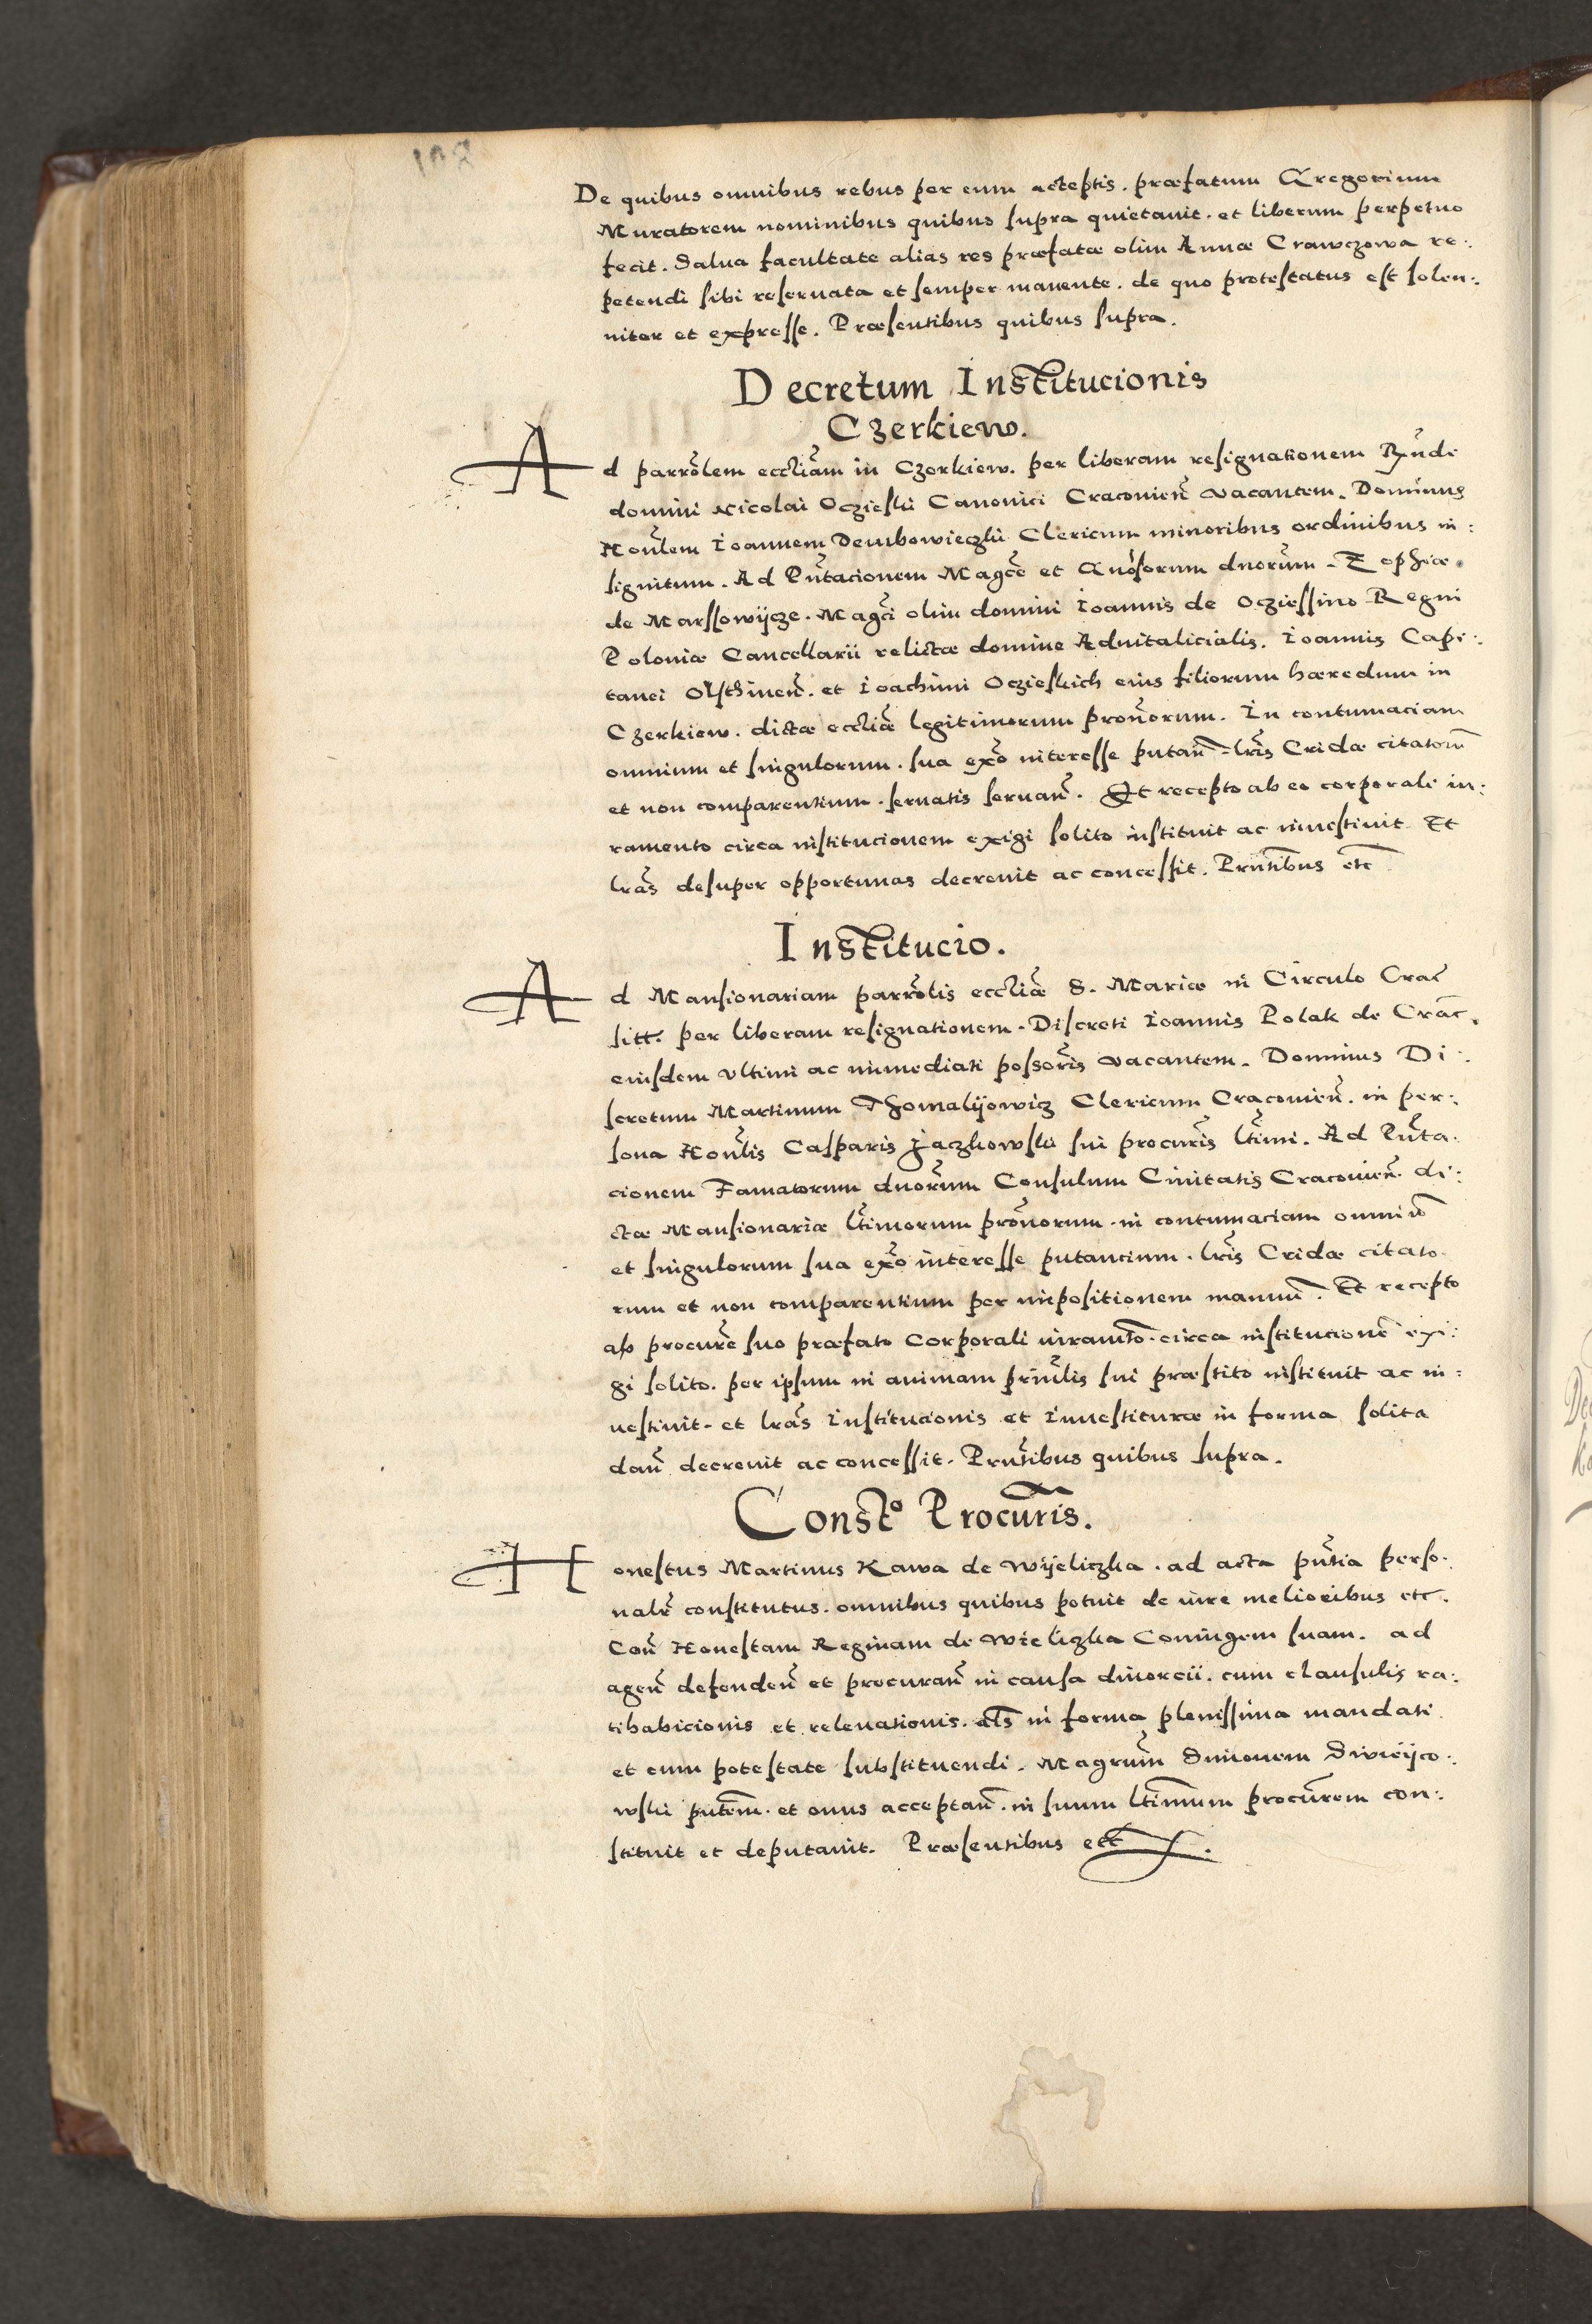 De quibus omnibus rebus per eum acceptis. præfatum Gregorium
Muratorem nominibus quibus supra quietauit. et liberum perpetuo
fecit. Salua facultate alias res præfatæ olim Annæ Crawczowa re:
petendi sibi reseruata et semper manente. de quo protestatus est solen:
niter et expresse. Præsentibus quibus supra.
Decretum Institucionis
Czerkiew.
Ad parrolem eccliam in Czerkiew. per liberam resignationem Rndi
domini Nicolai Oczieski Canonici Cracovien vacantem. Dominus
Honlem Ioannem Dembowieczki Clericum minoribus ordinibus in:
signitum. Ad Pntacionem Magce et Gnosorum dnorum. Zophiæ.
de Marssowijcze. Magci olim domini Ioannis de Ocziessino Regni
Poloniæ Cancellarii relictæ domine Aduitalicialis. Ioannis Capi:
tanei Olsthinen. et Ioachimi Oczieskich eius filiorum hæredum in
Czerkiew. dictæ eccliæ legitimorum pronorum. In contumaciam
omnium et singulorum. sua exo interesse putan. lris Cridæ citatorum
et non comparentium. seruatis seruan. Et recepto ab eo corporali iu:
ramento circa institucionem exigi solito instituit ac inuestiuit Et
lras desuper opportunas decreuit ac concessit. Prntibus etc
Institucio.
Ad Mansionariam parrolis eccliæ S. Mariæ in Circulo Crac
sitt. per liberam resignationem. Discreti Ioannis Polak de Crac.
eiusdem vltimi ac immediati possoris vacantem. Dominus Di:
scretum Martinum Thomalijowicz Clericum Cracovien. in per:
sona Honlis Casparis Jaczkowski sui procuris ltimi. Ad Pnta:
cionem Famatorum dnorum Consulum Ciuitatis Cracovien di:
ctæ Mansionariæ ltimorum pronorum. in contumaciam omnium
et singulorum sua exo interesse putancium. lris Cridæ citato
rum et non comparentium per impositionem manuum. Et recepto
ab procure suo præfato corporali iuramto. circa institucione exi:
gi solito. per ipsum in animam prinlis sui præstito instituit ac in:
uestiuit. et lras Institucionis et Inuestituræ in forma solita
dan decreuit ac concessit. Prntibus quibus supra.
Consto Procuris.
Honestus Martinus Kawa de Wijeliczka. ad acta pntia perso:
nalr constitutus. omnibus quibus potuit de iure melioribus etc.
Con Honestam Reginam de Wieliczka Coniugem suam. ad
agen defenden et procuran in causa diuorcii. cum clausulis ra:
tihabicionis et releuationis. als in forma plenissima mandati
et cum potestate substituendi. Magrum Simonem
wski pntem. et onus acceptan. in suum ltimum procurem con:
stituit et deputauit. Præsentibus etc